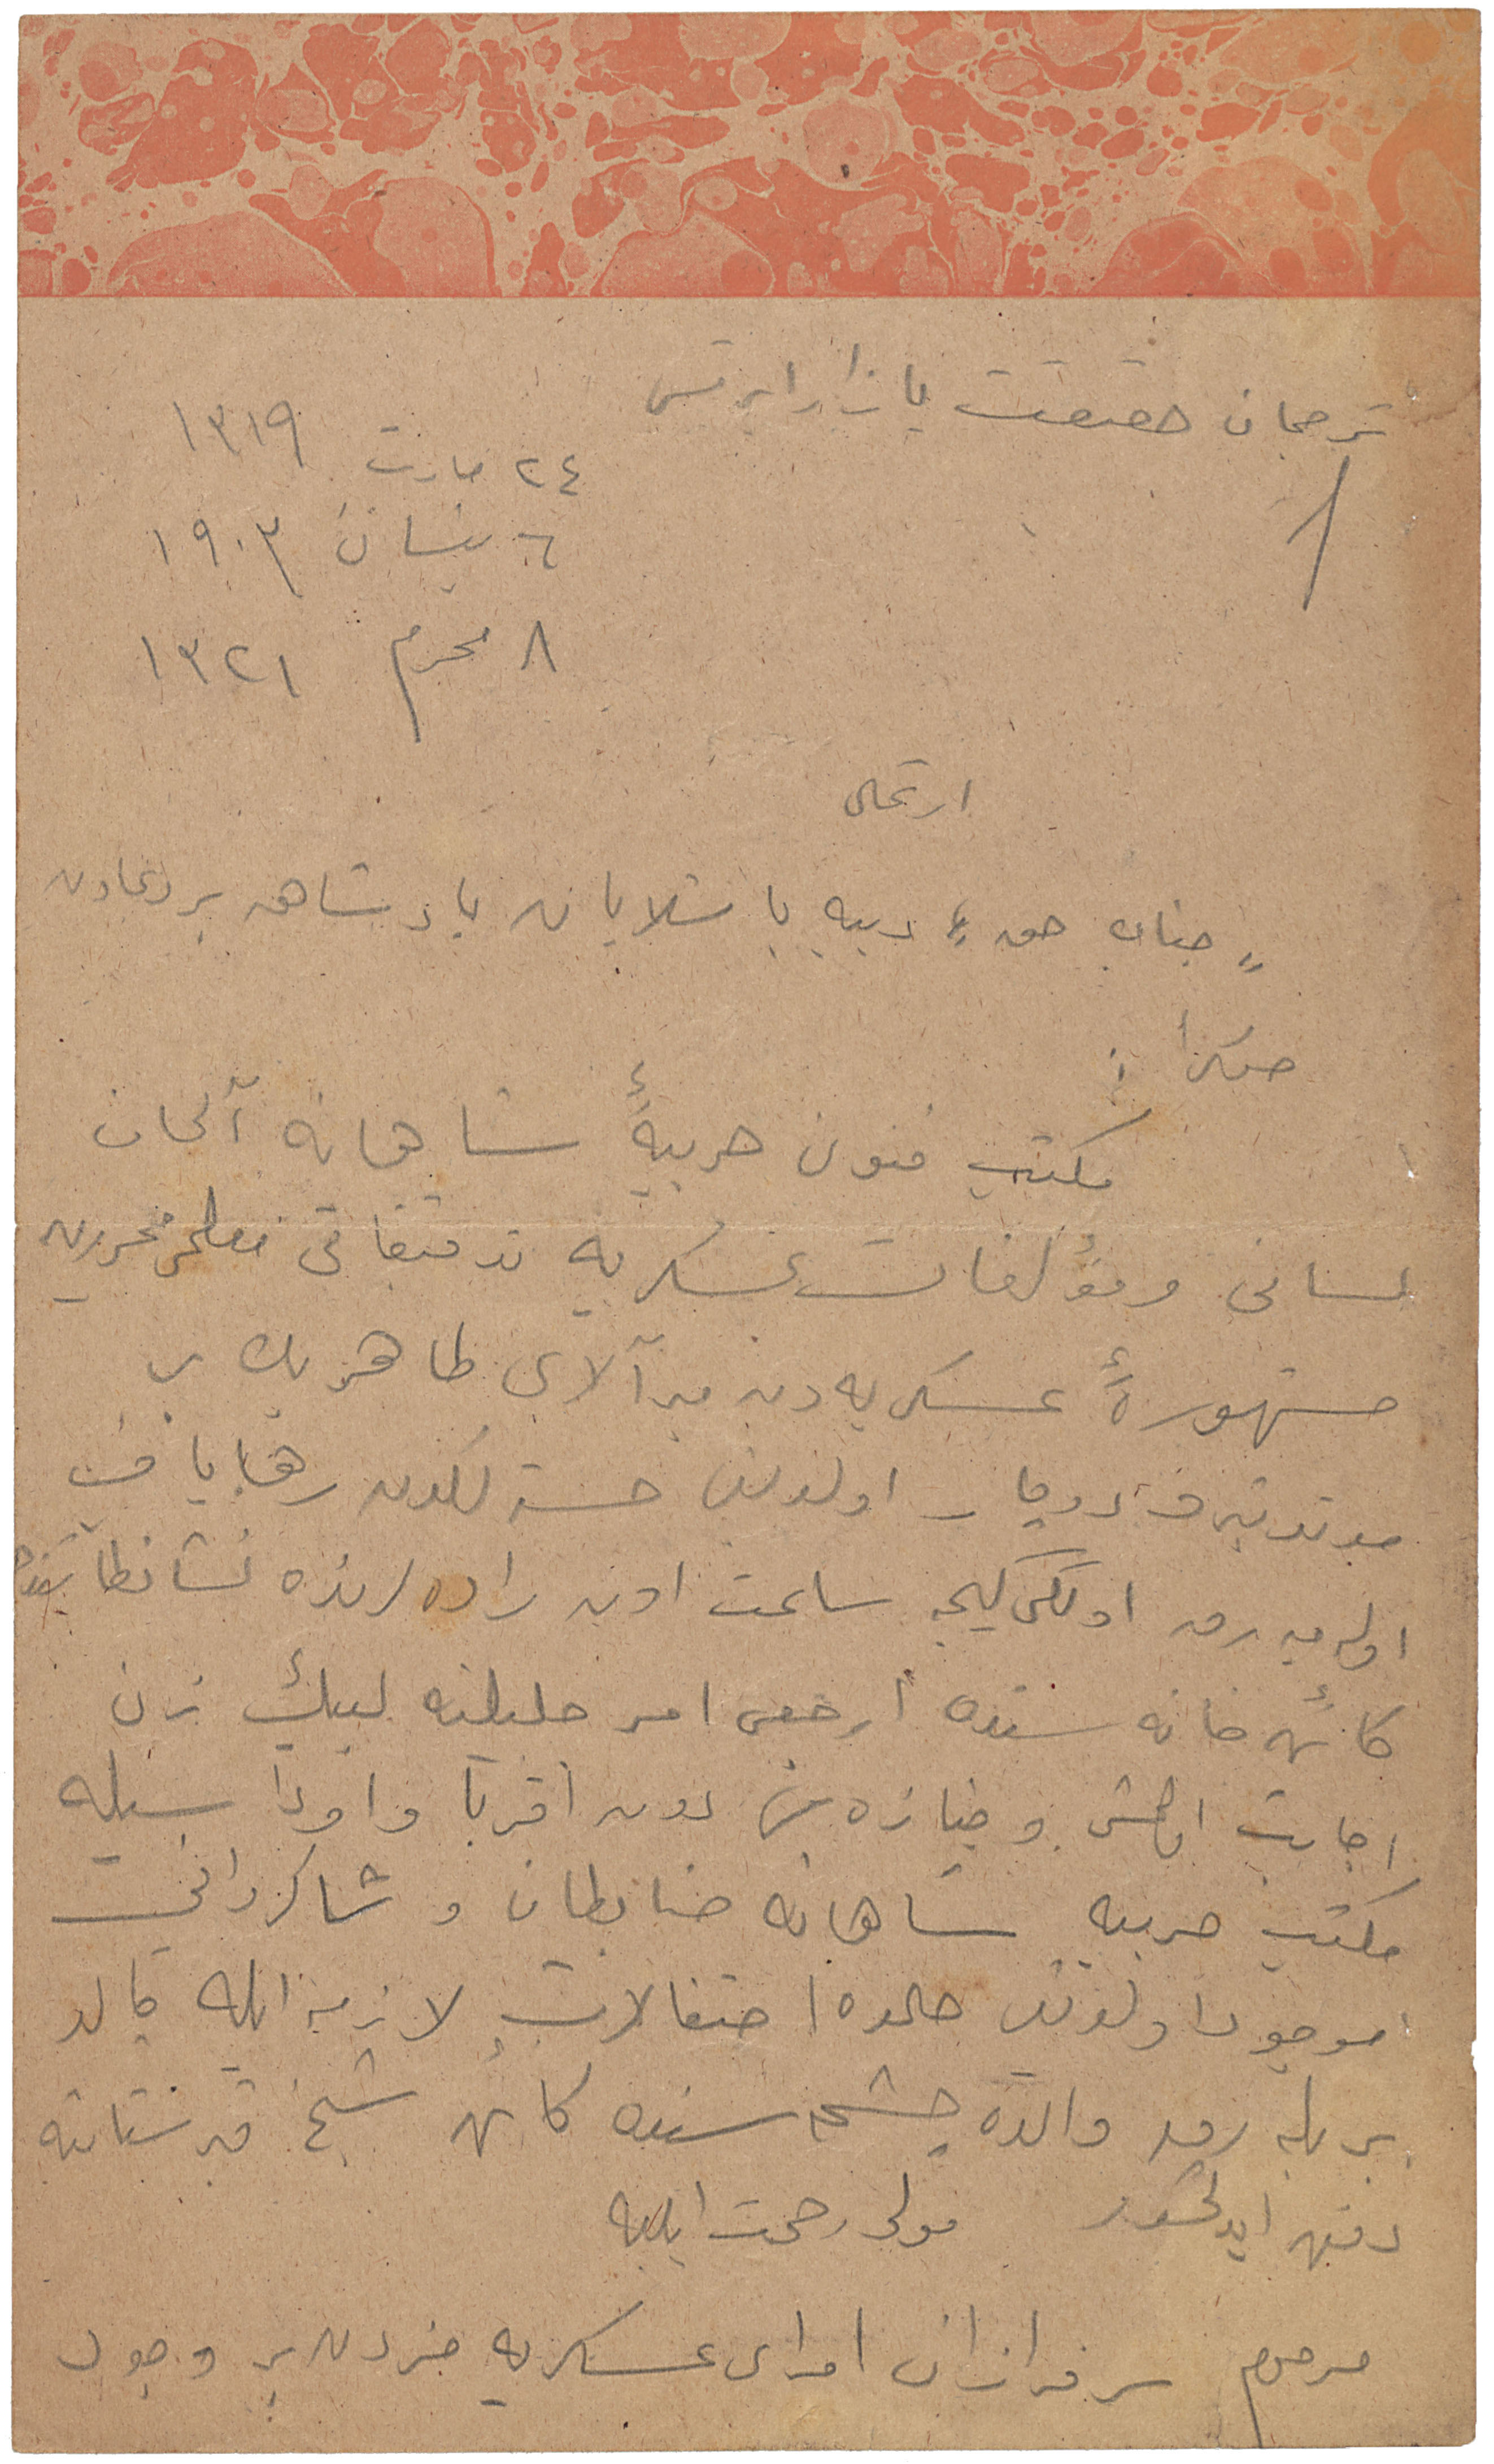 ترجمان حقیقت بازار ایرتسی
٢٤ مارت ١٣١٩
٦ نیسان ١٩٠٣
٨ محرم ١٣٢١
ارتحال
« جناب حق » دییه باشلایان پادشاهه بر دعادن
صکرا :
مکتب فنون حربیهٔ شاهانه آلمان
لسانی و مؤلفات عسکریه تدقیقاتی معلمی محررین
مشهورهٔ عسکریه دن میرآلای طاهر بك بر
مدتدنبرو دوچار اولدیغی خسته لکدن رهایاب
اوله میه رق اولکی کیجه ساعت اون راده لرنده نشانطاشنده
کائن خانه سنده ارجعی امر جلیلنه لبیك زن
اجابت اولمش و جنازه سی دون اقربا و اوداسیله
مکتب حربیه شاهانه ضابطان و شاکردانی
موجود اولدیغی حالده احتفالات لازمه ایله قالد
یریله رق والده چشمه سنده کائن شیخ قبرستاننه
دفن ایدلمشدر مولی رحمت ایلیه
مرحوم سرفرازان امرای عسکریه مزدن بر وجود